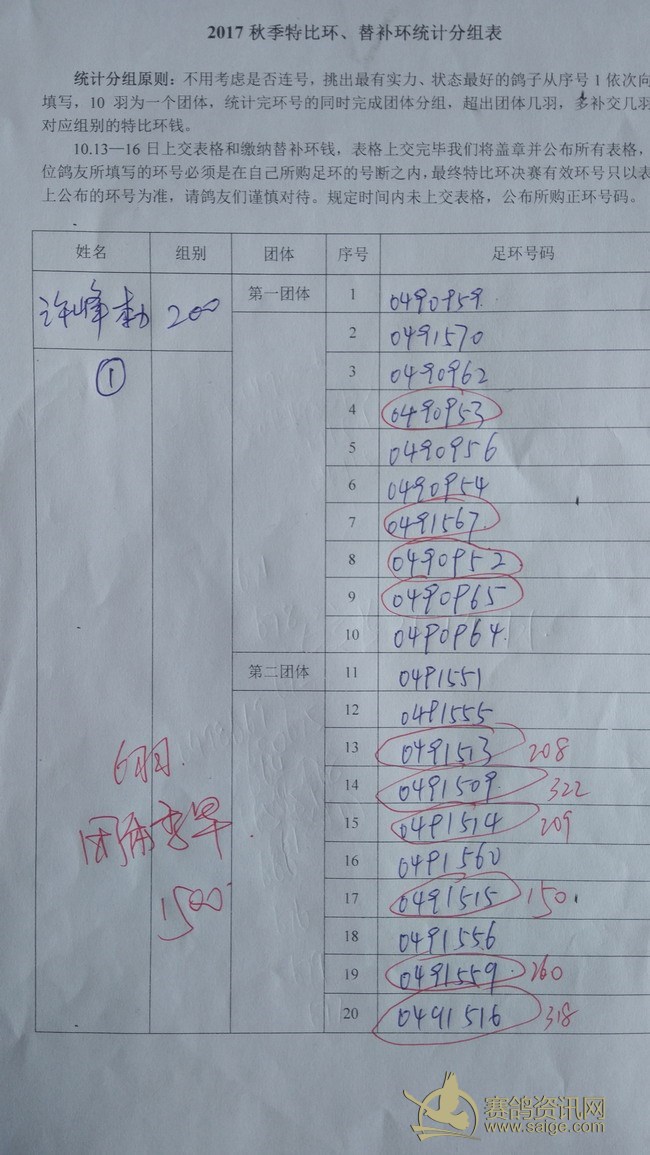 2017 秋季特比环、替补环统计分组表
统计分组原则：不用考虑是否连号，挑出最有实力、状态最好的鸽子从序号 1 依次向
填写，10 羽为一个团体，统计完环号的同时完成团体分组，超出团体几羽，多补交几羽
对应组别的特比环钱。
10.13—16 日上交表格和缴纳替补环钱，表格上交完毕我们将盖章并公布所有表格，
位鸽友所填写的环号必须是在自己所购足环的号断之内，最终特比环决赛有效环号只以表
上公布的环号为准，请鸽友们谨慎对待。规定时间内未上交表格，公布所购正环号码。
姓名 组别 团体 序号 足环号码
许峰 200 第一团体 1 0490959
2 0491570
① 3 0490962
4 0490953
5 0490956
6 0490954
7 0491567
8 0490952
9 0490965
10 0490964
第二团体 11 0491551
12 0491555
13 0491513 208
6羽 14 0491509 322
15 0491514 209
团体 16 0491560
1500 17 0491515 150
18 0491556
19 0491559 260
20 0491516 318
赛鸽资讯网
www.saige.com